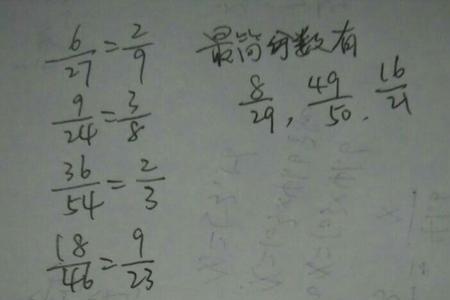 6/27=2/9
9/24=3/8
36/54=2/3
18/46=9/23
最简分数有
8/29, 49/50, 16/21